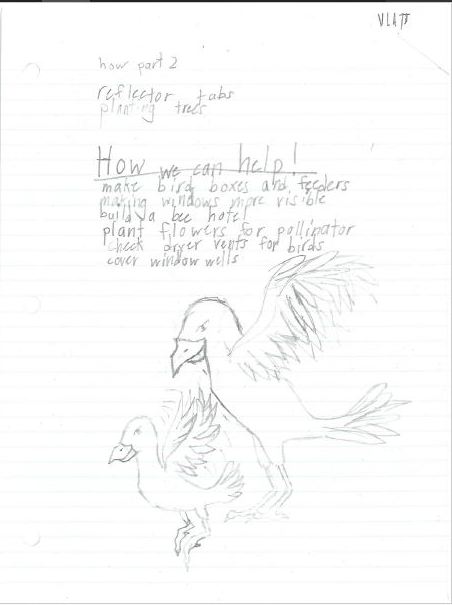 how part 2
reflector tabs
planting trees
How we can help!
make bird boxes and feeders
making windows more visible
build a bee hotel
plant flowers for pollinator
check dryer vents for birds
cover window wells